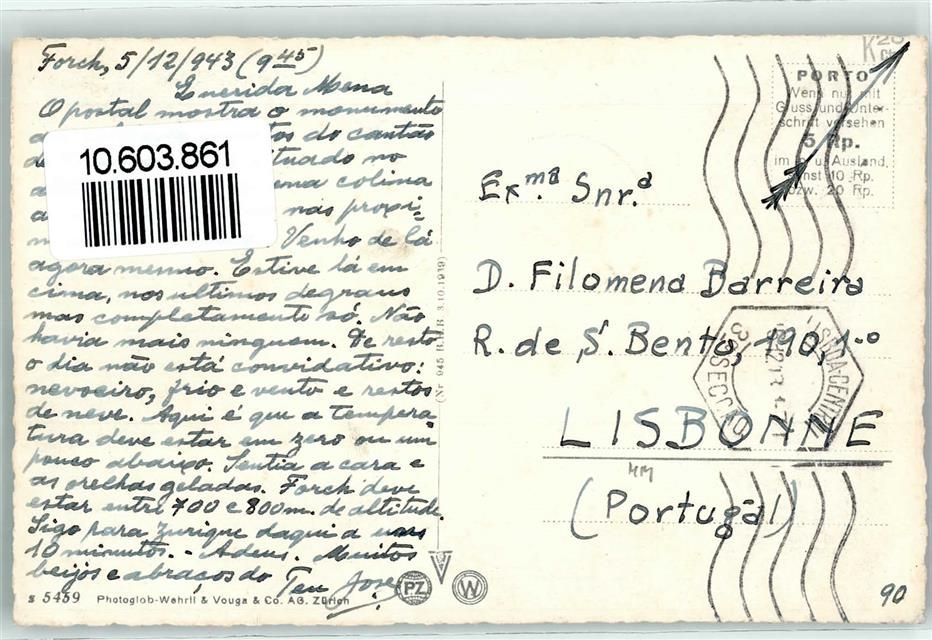 Forch, 5/12/943 (9 45)
Querida Mena
O postal mostra o monumento
do cantão
situado no
uma colina
nas proxi-
Venho de lá
agora mesmo. Estive lá em
cima, nos ultimos degraus
mas completamente só. Não
havia mais ninguem. De resto
o dia não está convidativo:
nevoeiro, frio e vento e restos
de neve. Aqui é que a tempera-
tura deve estar em zero ou um
pouco abaixo. Sentia a cara e
as orelhas geladas. Forch deve
estar entre 700 e 800m. de altitude.
Sigo para Zurique daqui a uns
10 minutos. - Adeus. Muitos
beijos e abraços do Teu José
10.603.861
s 5459 Photoglob-Wehrli & Vouga & Co. AG. Zürich
PZ
W
(Nr. 945 B.R.B. 3.10.1939)
PORTO
Wenn nur mit
Gruss und Unter-
schrift versehen
5 Rp.
im u. Ausland,
10 Rp.
bzw. 20 Rp.
Exma. Snr.a
D. Filomena Barreira
R. de S. Bento, 190, 1.o
LISBONNE
(Portugal)
LISBOA CENTRAL
3a SECÇÃO
90